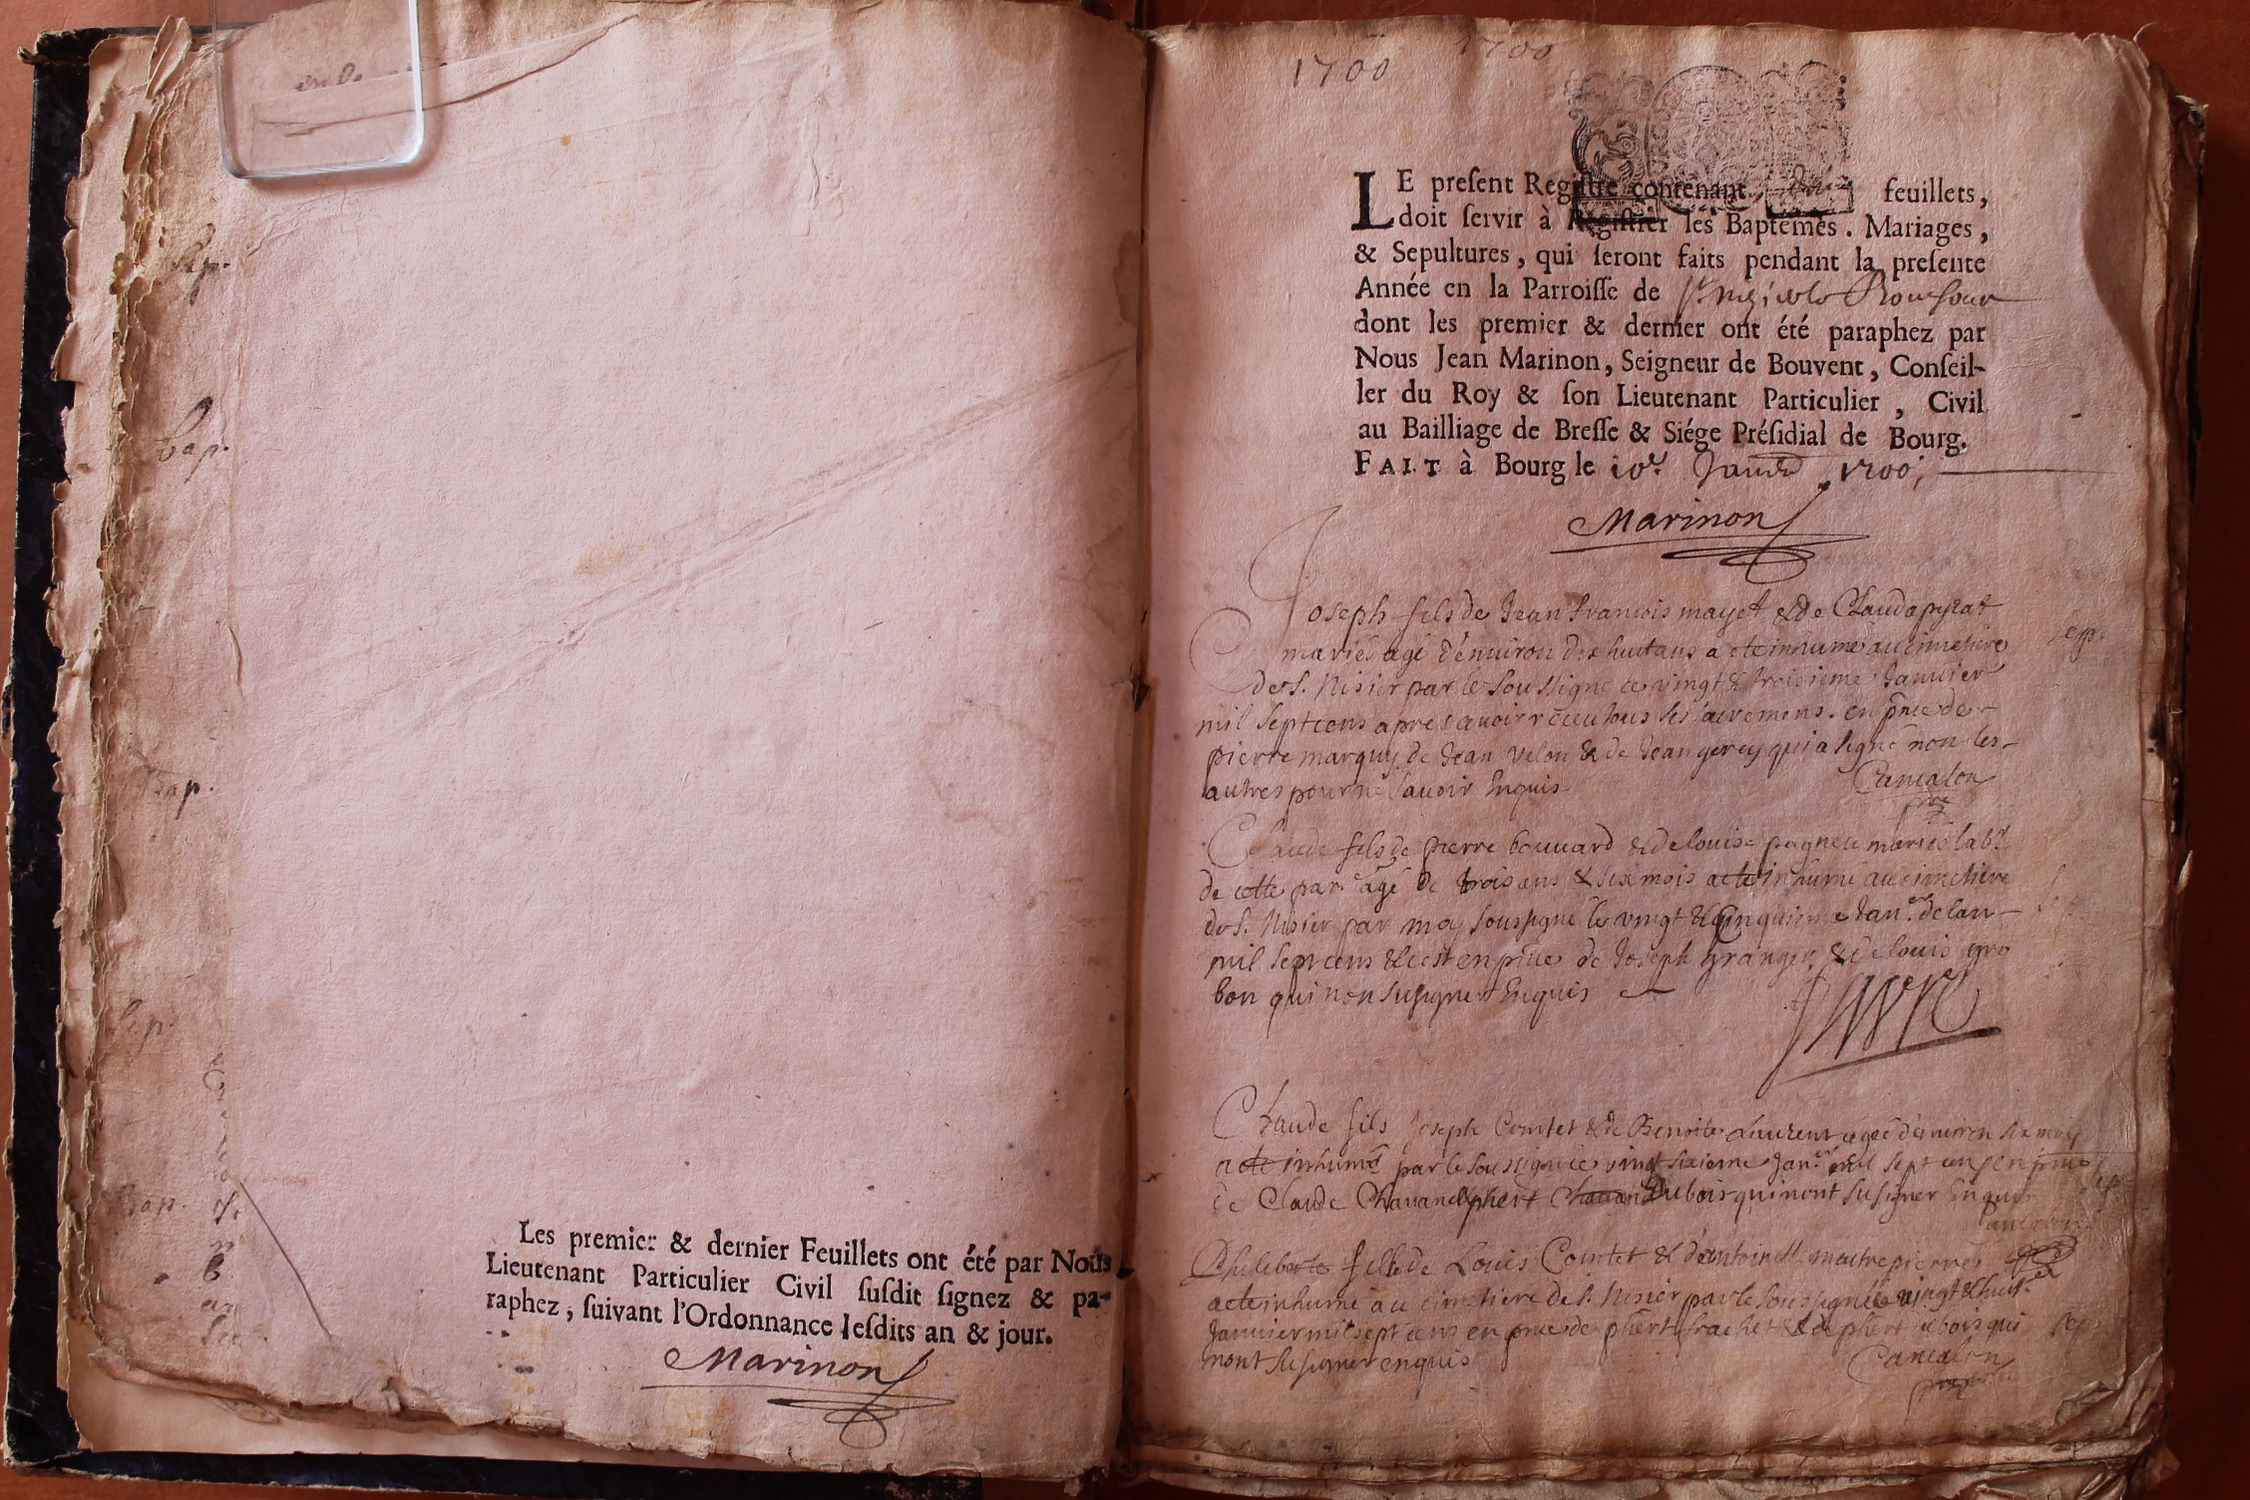 Sep.
bap.
bap.
Sep.
bap.
Les premier & dernier Feuillets ont été par Nous
Lieutenant Particulier Civil ſuſdit ſignez & pa-
raphez, ſuivant l'Ordonnance leſdits an & jour.
Marinon
1700 1700
LE preſent Regiſtre contenant feuillets,
doit ſervir à Regiſtrer les Baptêmes. Mariages,
& Sepultures, qui ſeront faits pendant la preſente
Année en la Parroiſſe de
dont les premier & dernier ont été paraphez par
Nous Jean Marinon, Seigneur de Bouvent, Conſeil-
ler du Roy & ſon Lieutenant Particulier, Civil
au Bailliage de Breſſe & Siége Préſidial de Bourg.
FAIT à Bourg le 10e. Janvier 1700;
Marinon
Joseph fils de Jean francois mayet & de Clauda pyrat
mariés agé denuiron dix huit ans a ete inhumé au cimetiere
de S. Nisier par le soussigné ce vingt & troisieme Januier
mil sept cens apres auoir receu tous ses sacremens. en pnce de
pierre marquis de Jean velon & de Jean gerey qui a signé non les
autres pour ne sauoir Enquis
Cancalon
Sep.
Claude fils de pierre bouuard & de louise pagneu mariés lab.
de cette par. agé de trois ans & six mois a ete inhumé au cimetiere
de S. Nisier par moy soussigné le vingt & Cinquieme Jan. de lan
mil sept cens & cest en pnce de Joseph granger & de louis gro
bon qui non su signer Enquis
Claude fils Joseph Comtet & de Benoite Laurent agé denuiron six mois
a ete inhumé par le soussigné ce vingt sixieme Jan. mil sept cens en pnce
de Claude Chanand & phert Dubois qui nont su signer Enquis
Sep.
Phileberte fille de Louis Comtet & dantoinett
a ete inhumé au cimetiere de S. Nisier par le soussigné le vingt & huit
Januier mil sept cens en pnce de phert frachet & de phert dubois qui
nont su signer enquis
Cancalon
Sep.